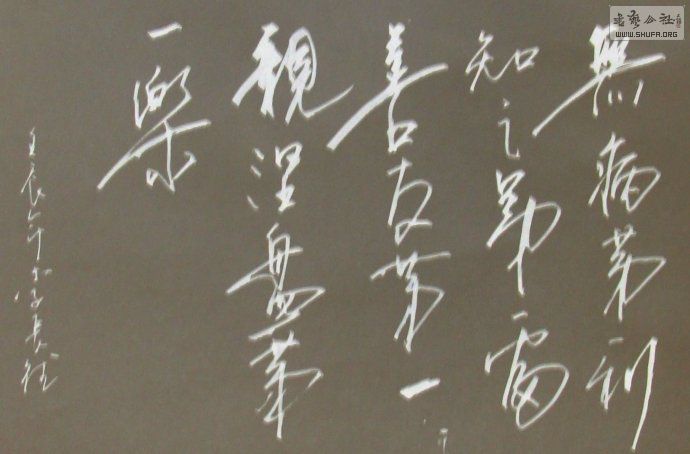 書藝公社
WWW.SHUFA.ORG
無病第利
知足第富
善友第一
親涅盤第
一樂